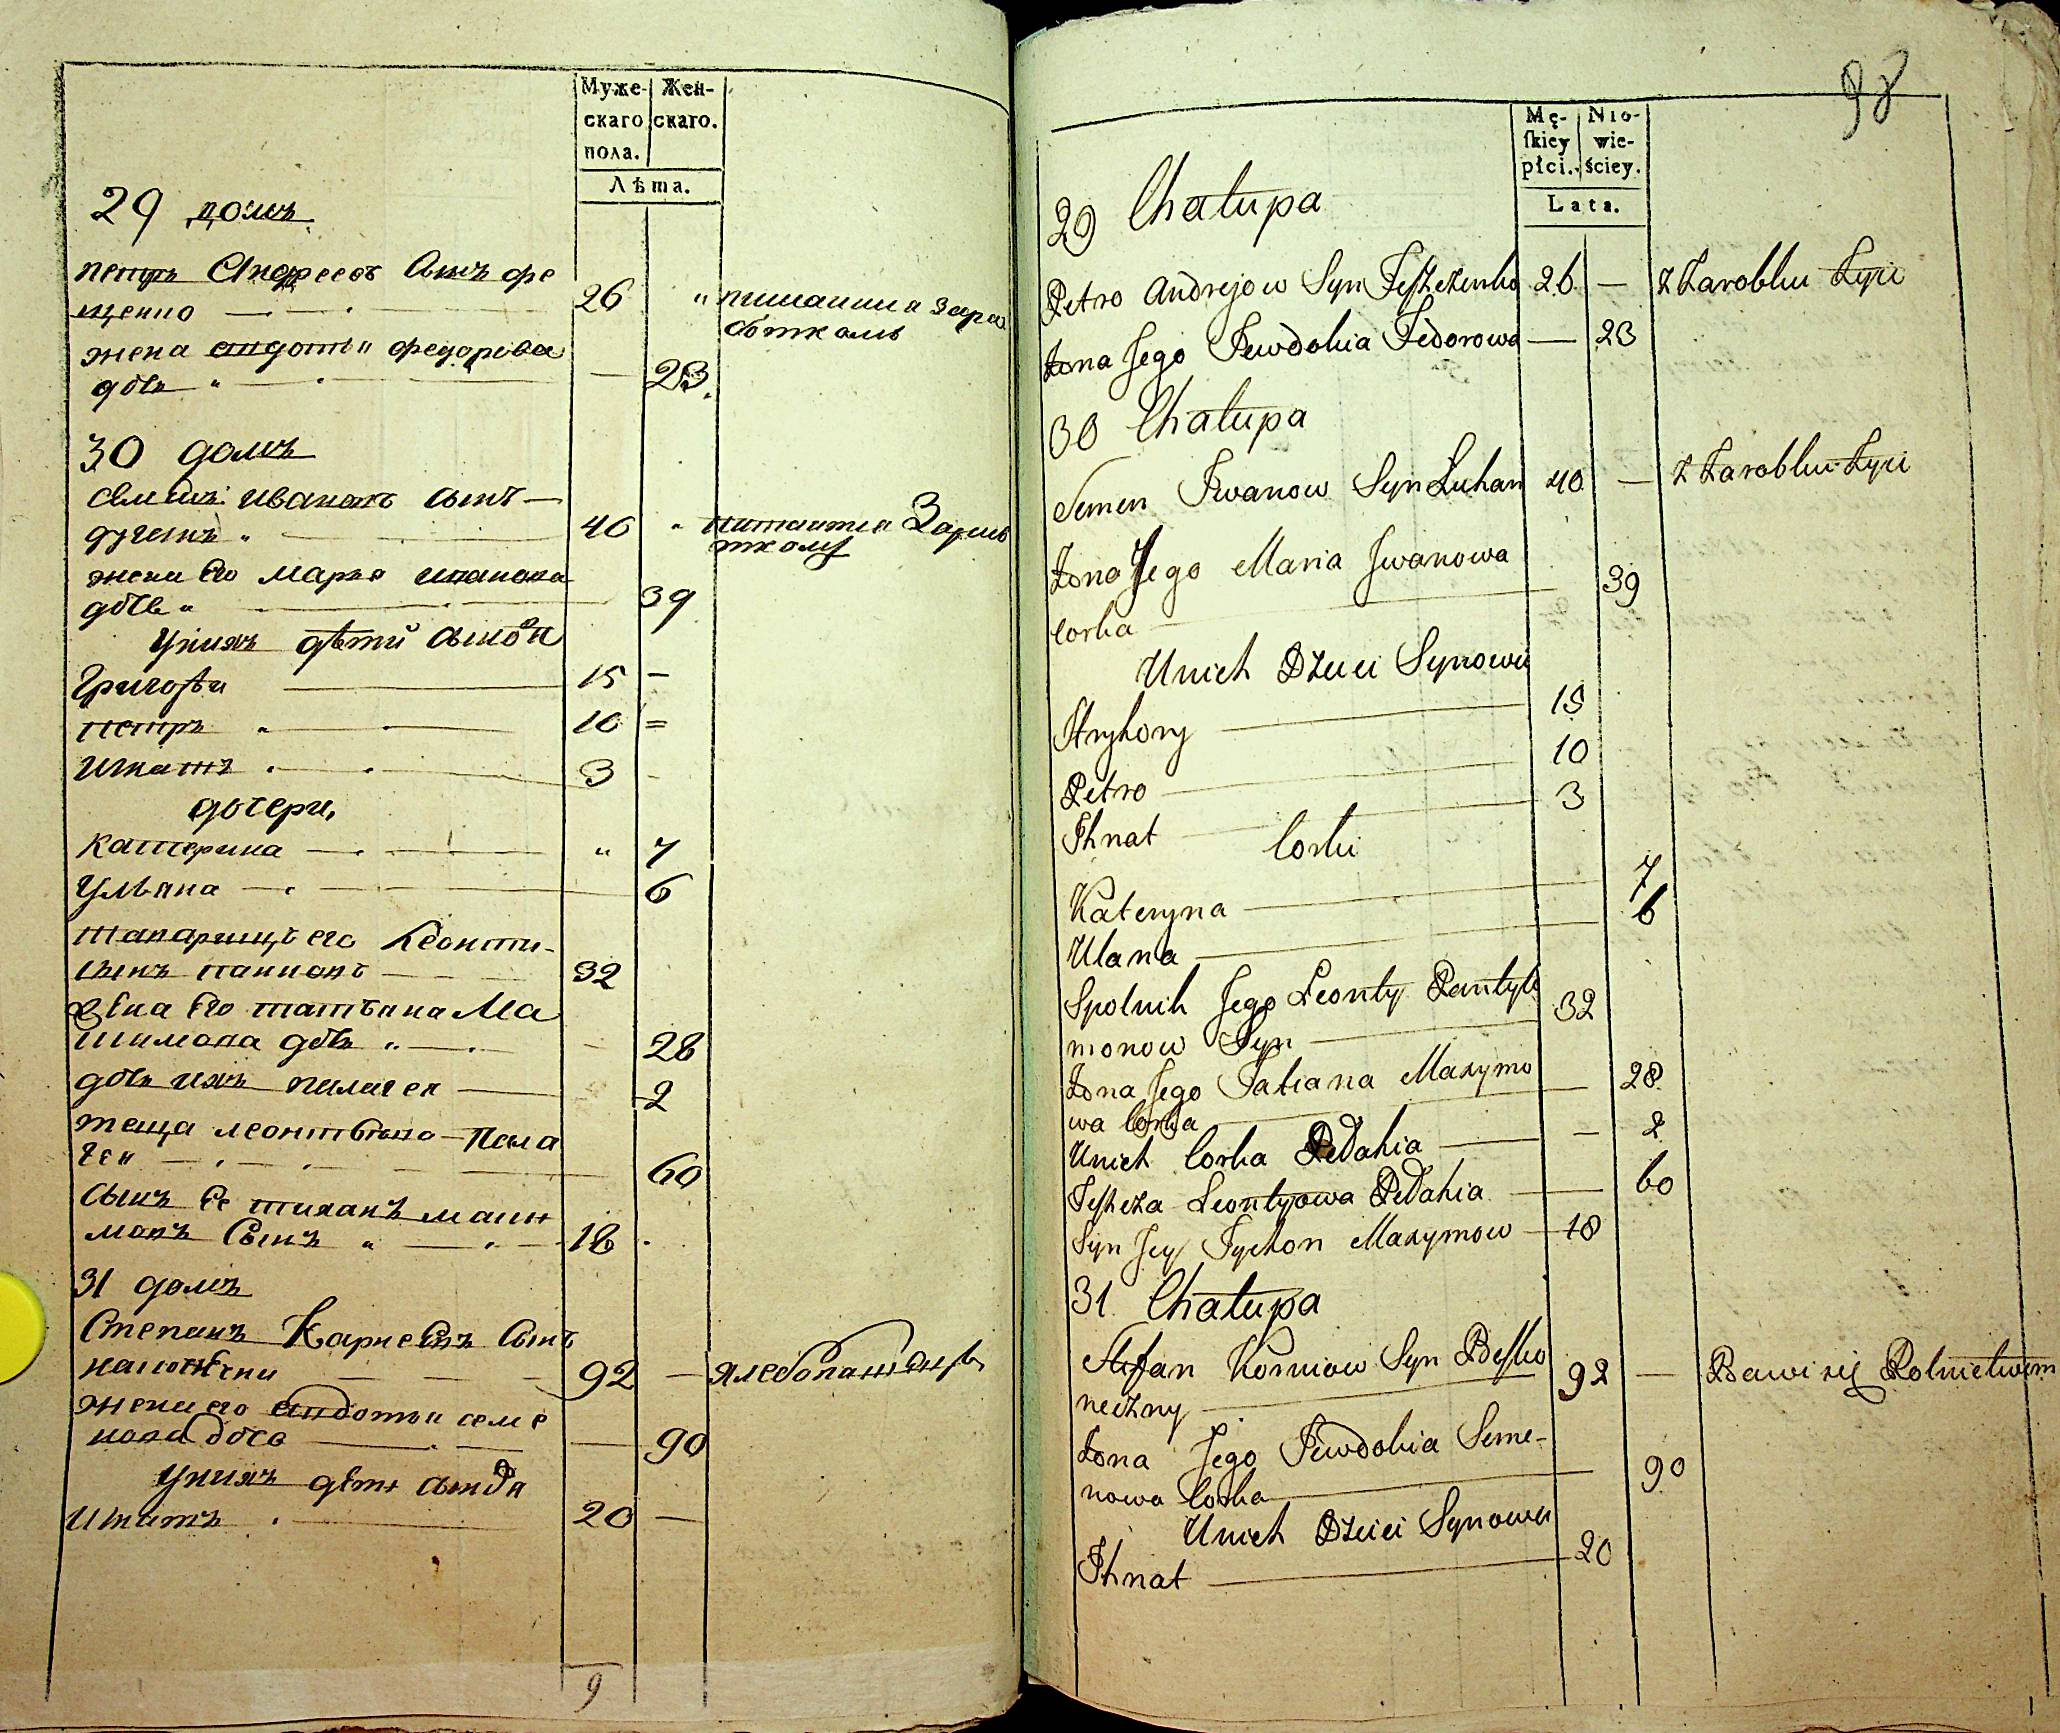 Муже- Жен-
скаго скаго.
пола.
Лѣта.
29 домъ
петръ Андреевъ Сынъ фе
щенко 26 " питаится зара
боткомъ
жена евдотья федорова
дочь " — 23.
30 домъ
Семенъ ивановъ сынъ —
40 " питаится Зарабо
ткому
жена Его Марья иванова
дочь " 39
Унихъ дѣти сынов
Григорѣй 15 —
петръ " 10 =
Игнатъ 3 -
дочери,
Катерина " 7
Ульяна 6
таварищъ его Леонти-
Сынъ 32
Жена Его татьяна Ма
ксимова дочь " — 28
дочь ихъ пилагея 2
теща леонтьева — Пела
гея 60
Сынъ Ее тихонъ макси
мовъ Сынъ " 18 .
31 домъ
Степанъ Карнеевъ Сынъ
92 — хлебопашецъ
жена его евдотья семе
нова дочь — 90
Унихъ дѣти сынов
Игнатъ 20 —
9
98
Mę- Nie-
skiey wie-
płci. ściey.
Lata.
29 Chałupa
Petro Andrejow Syn Feszczenko 26 — z Zarobku Żyie
Żona Jego Jewdokia Fedorowa — 23
30 Chałupa
Semen Jwanow Syn Luhan 40 — z Zarobku Żyie
Żona Jego Maria Jwanowa
Corka 39
Unich Dzieci Synowie
Hryhory 15
Petro 10
Jhnat 3
Corki
Kateryna 7
Ulana 6
Spolnik Jego Leonty Pantyli
monow Syn 32
Żona Jego Tatiana Maxymo — 28
wa Corka
Unich Corka Pełahia — 2
Teszcza Leontyjowa Pełahia — 60
Syn Jey Tychon Maxymow 18
31 Chałupa
Stefan Korniow Syn Besko
neczny 92 — Bawi się Rolnictwem
Żona Jego Jewdokia Seme-
nowa Corka 90
Unich Dzieci Synowie
Jhnat 20